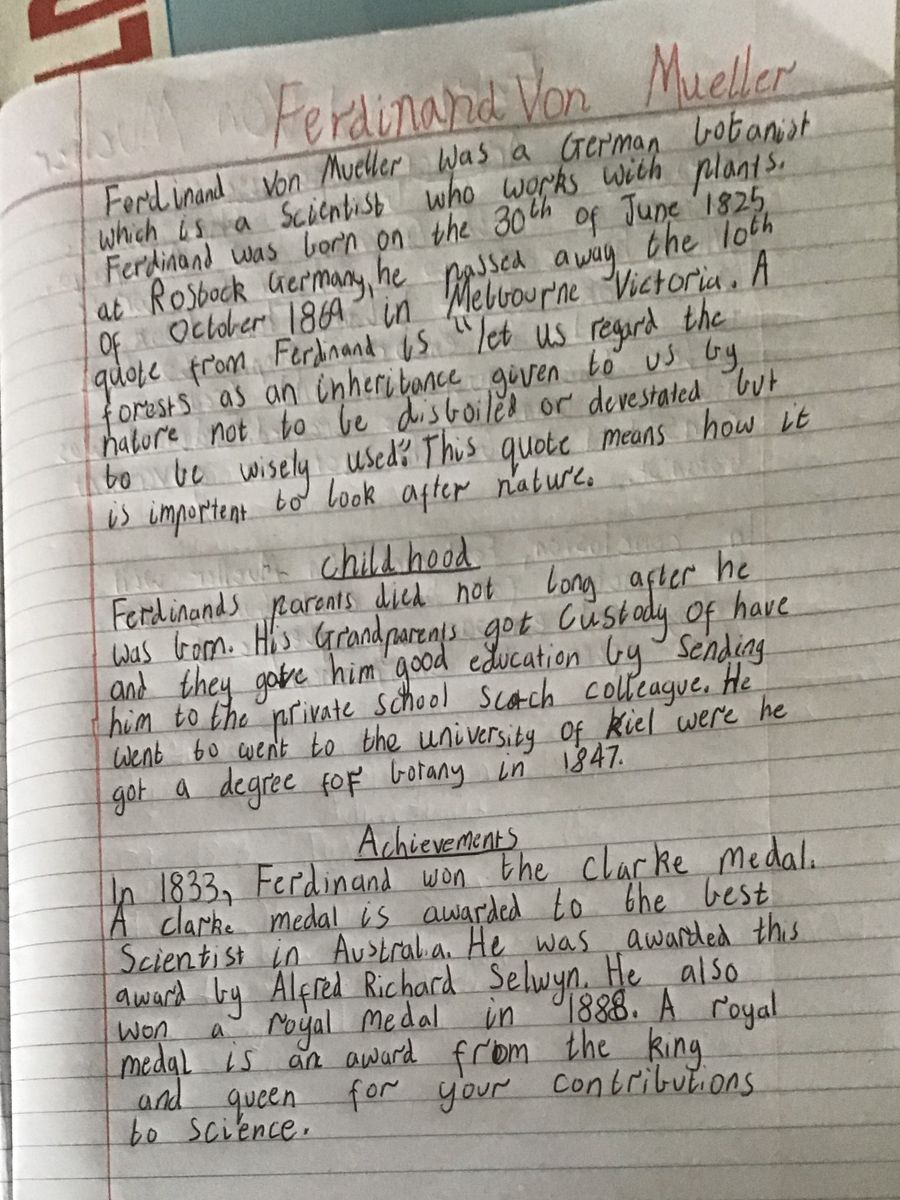 Ferdinand Von Mueller
Ferdinand Von Mueller was a German botanist
which is a Scientist who works with plants.
Ferdinand was born on the 30th of June 1825
at Rosbock Germany, he passed away the 10th
of October 1869 in Melbourne Victoria. A
quote from Ferdinand is "let us regard the
forests as an inheritance given to us by
nature not to be disboiled or devestated but
to be wisely used". This quote means how it
is importent to look after nature.
childhood
Ferdinands parents died not long after he
was born. His Grandparents got Custody of have
and they gave him good education by Sending
him to the private school scotch colleague. He
went to went to the university of Kiel were he
got a degree for botany in 1847.
Achievements
In 1833, Ferdinand won the clarke medal.
A clarke medal is awarded to the best
Scientist in Australia. He was awarded this
award by Alfred Richard Selwyn. He also
won a royal medal in 1888. A royal
medal is an award from the king
and queen for your contributions
to science.